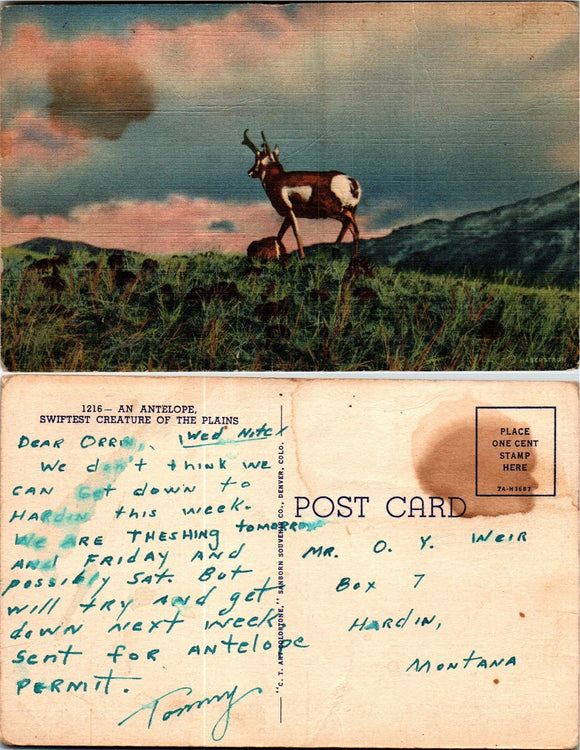 © HABERSTROH
1216 — AN ANTELOPE,
SWIFTEST CREATURE OF THE PLAINS
Wed Nite
DEAR ORRIN,
We don't think we
CAN Get down to
HARDIN this week.
We ARE THESHING tomorrow
AND FRIDAY AND
possibly SAT. But
will try AND get
down next week
Sent for ANtelope
PERMIT.
Tommy
"C. T. ART-COLORTONE," SANBORN SOUVENIR CO., DENVER, COLO.
POST CARD
PLACE
ONE CENT
STAMP
HERE
7A-H3687
MR. O. Y. WEIR
BOX 7
HARDIN,
MONTANA